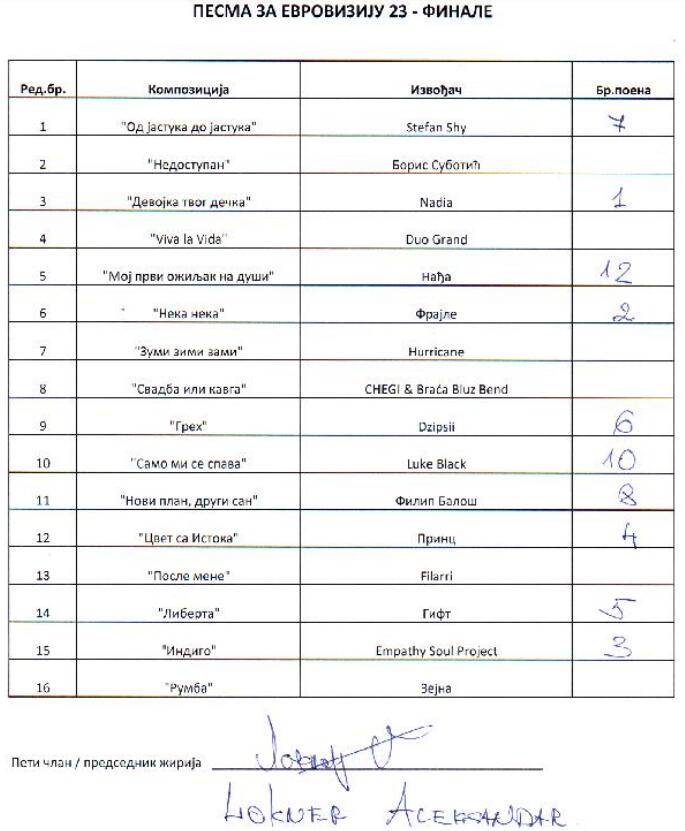 ПЕСМА ЗА ЕВРОВИЗИЈУ 23 - ФИНАЛЕ
Ред.бр. Композиција Извођач Бр.поена
1 "Од јастука до јастука" Stefan Shy 7
2 "Недоступан" Борис Суботић
3 "Девојка твог дечка" Nadia 1
4 "Viva la Vida" Duo Grand
5 "Мој први ожиљак на души" Нађа 12
6 "Нека нека" Фрајле 2
7 "Зуми зими зами" Hurricane
8 "Свадба или кавга" CHEGI & Braća Bluz Bend
9 "Грех" Dzipsii 6
10 "Само ми се спава" Luke Black 10
11 "Нови план, други сан" Филип Балош 8
12 "Цвет са Истока" Принц 4
13 "После мене" Filarri
14 "Либерта" Гифт 5
15 "Индиго" Empathy Soul Project 3
16 "Румба" Зејна
Пети члан / председник жирија
LOKNER ALEKSANDAR